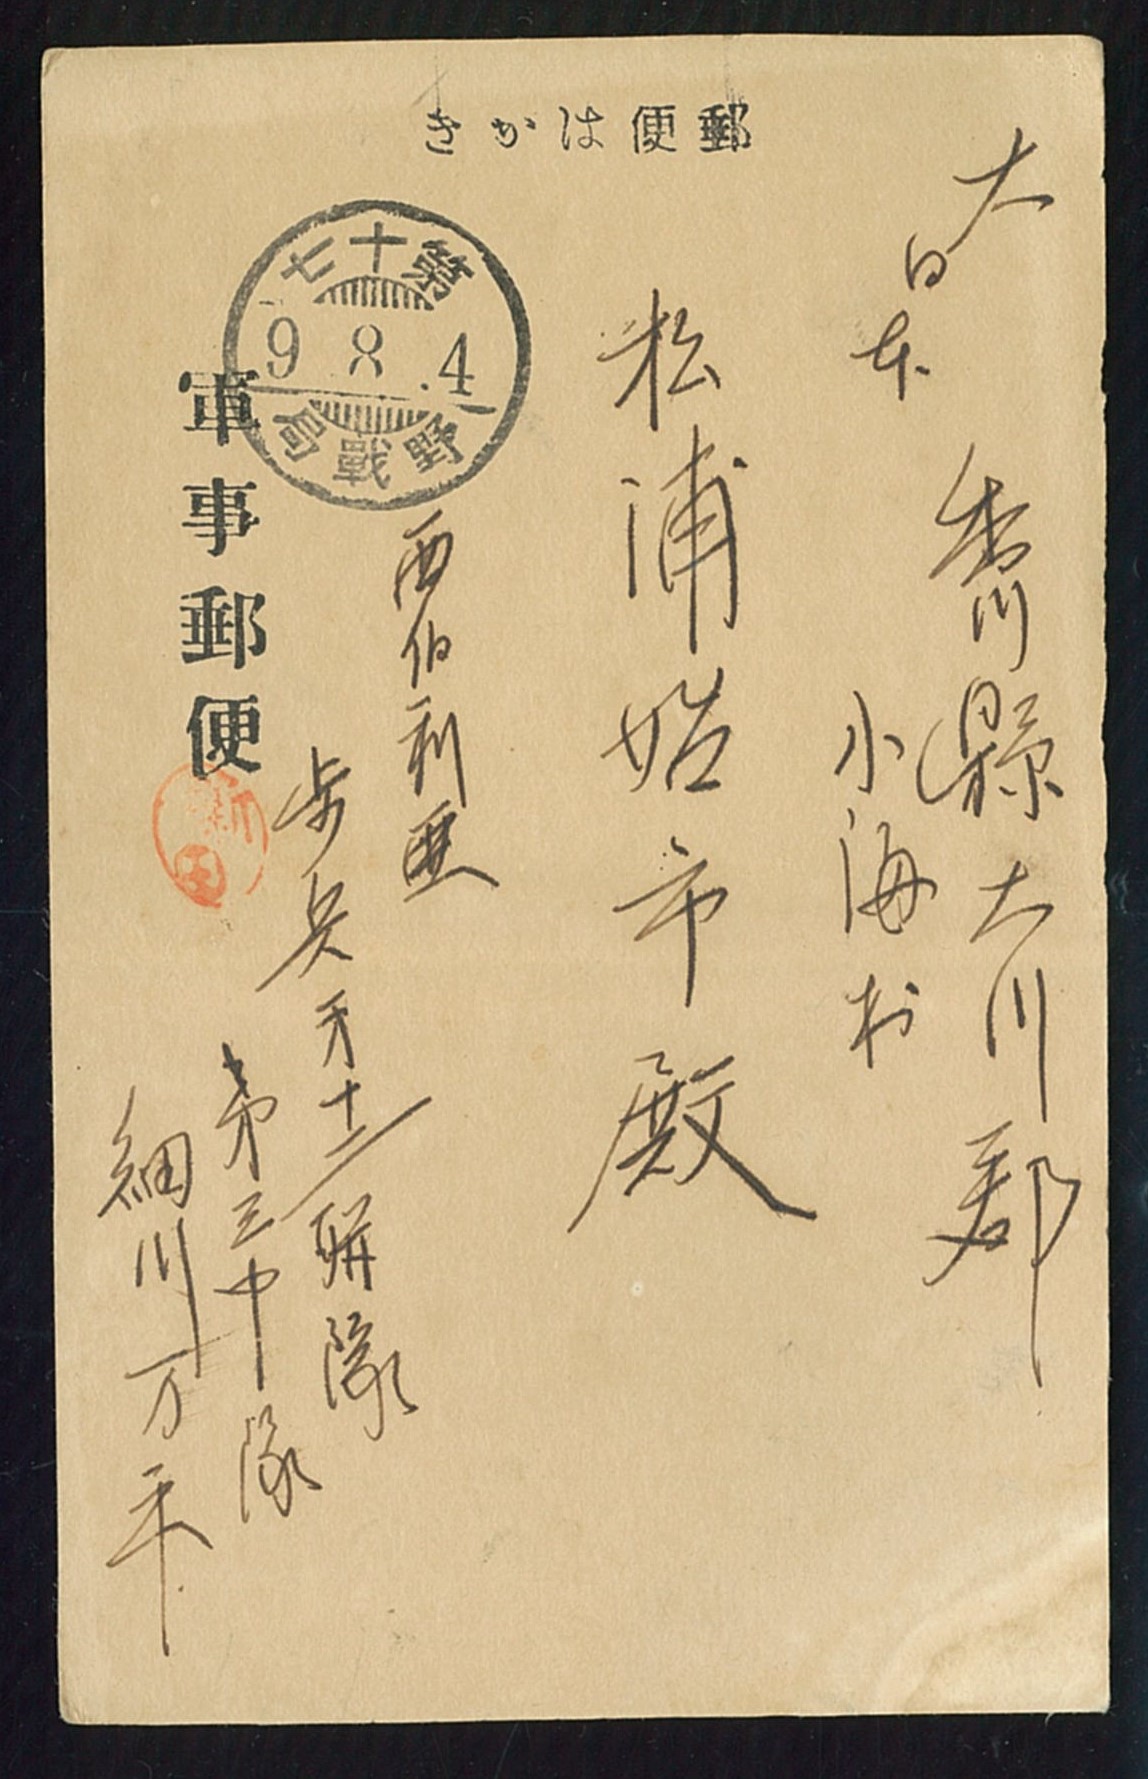 郵便はがき
大日本
香川縣大川郡
小海村
松浦始市殿
第十七
9 8 .4
野戰局
軍事郵便
新田
西伯利亜
歩兵第十二聯隊
第三中隊
細川万平